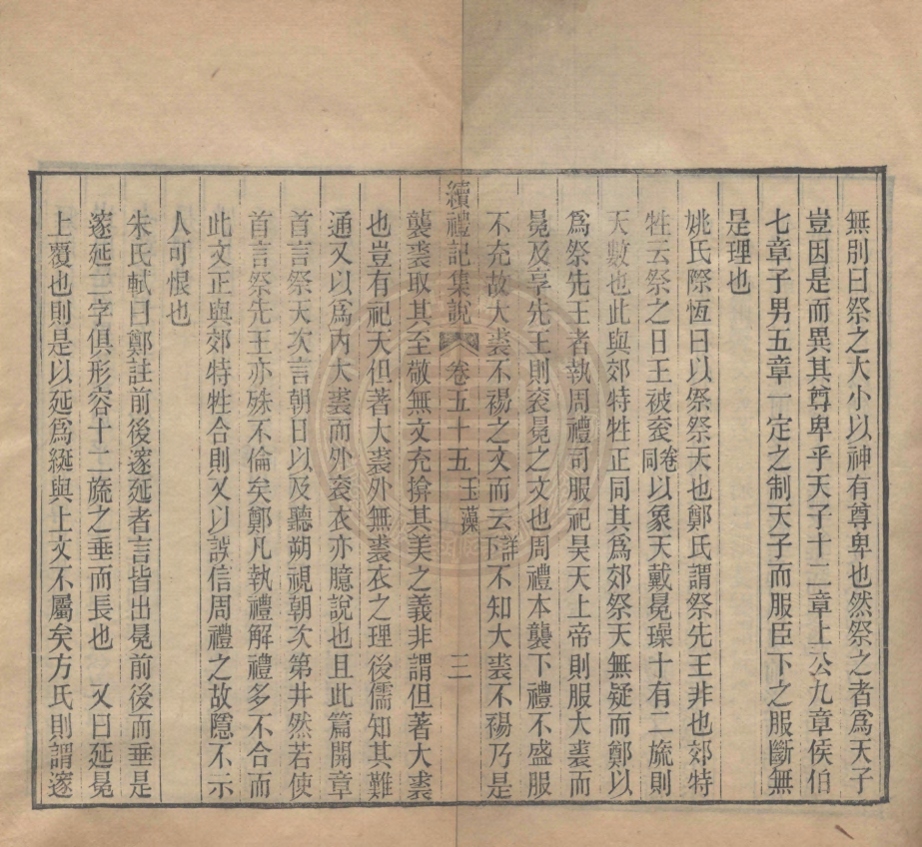 無別曰祭之大小以神有尊卑也然祭之者爲天子
豈因是而異其尊卑乎天子十二章上公九章侯伯
七章子男五章一定之制天子而服臣下之服斷無
是理也
姚氏際恆曰以祭祭天也鄭氏謂祭先王非也郊特
牲云祭之日王被袞卷同以象天戴冕璪十有二旒則
天數也此與郊特牲正同其爲郊祭天無疑而鄭以
爲祭先王者執周禮司服祀昊天上帝則服大裘而
冕及享先王則袞冕之文也周禮本襲下禮不盛服
不充故大裘不裼之文而云詳下不知大裘不裼乃是
續禮記集說 卷五十五 玉藻 三
襲裘取其至敬無文充揜其美之義非謂但著大裘
也豈有祀天但著大裘外無裘衣之理後儒知其難
通又以爲內大裘而外袞衣亦臆說也且此篇開章
首言祭天次言朝日以及聽朔視朝次第井然若使
首言祭先王亦殊不倫矣鄭凡執禮解禮多不合而
此文正與郊特牲合則又以誤信周禮之故隱不示
人可恨也
朱氏軾曰鄭註前後邃延者言皆出冕前後而垂是
邃延三字俱形容十二旒之垂而長也 又曰延冕
上覆也則是以延爲綖與上文不屬矣方氏則謂邃